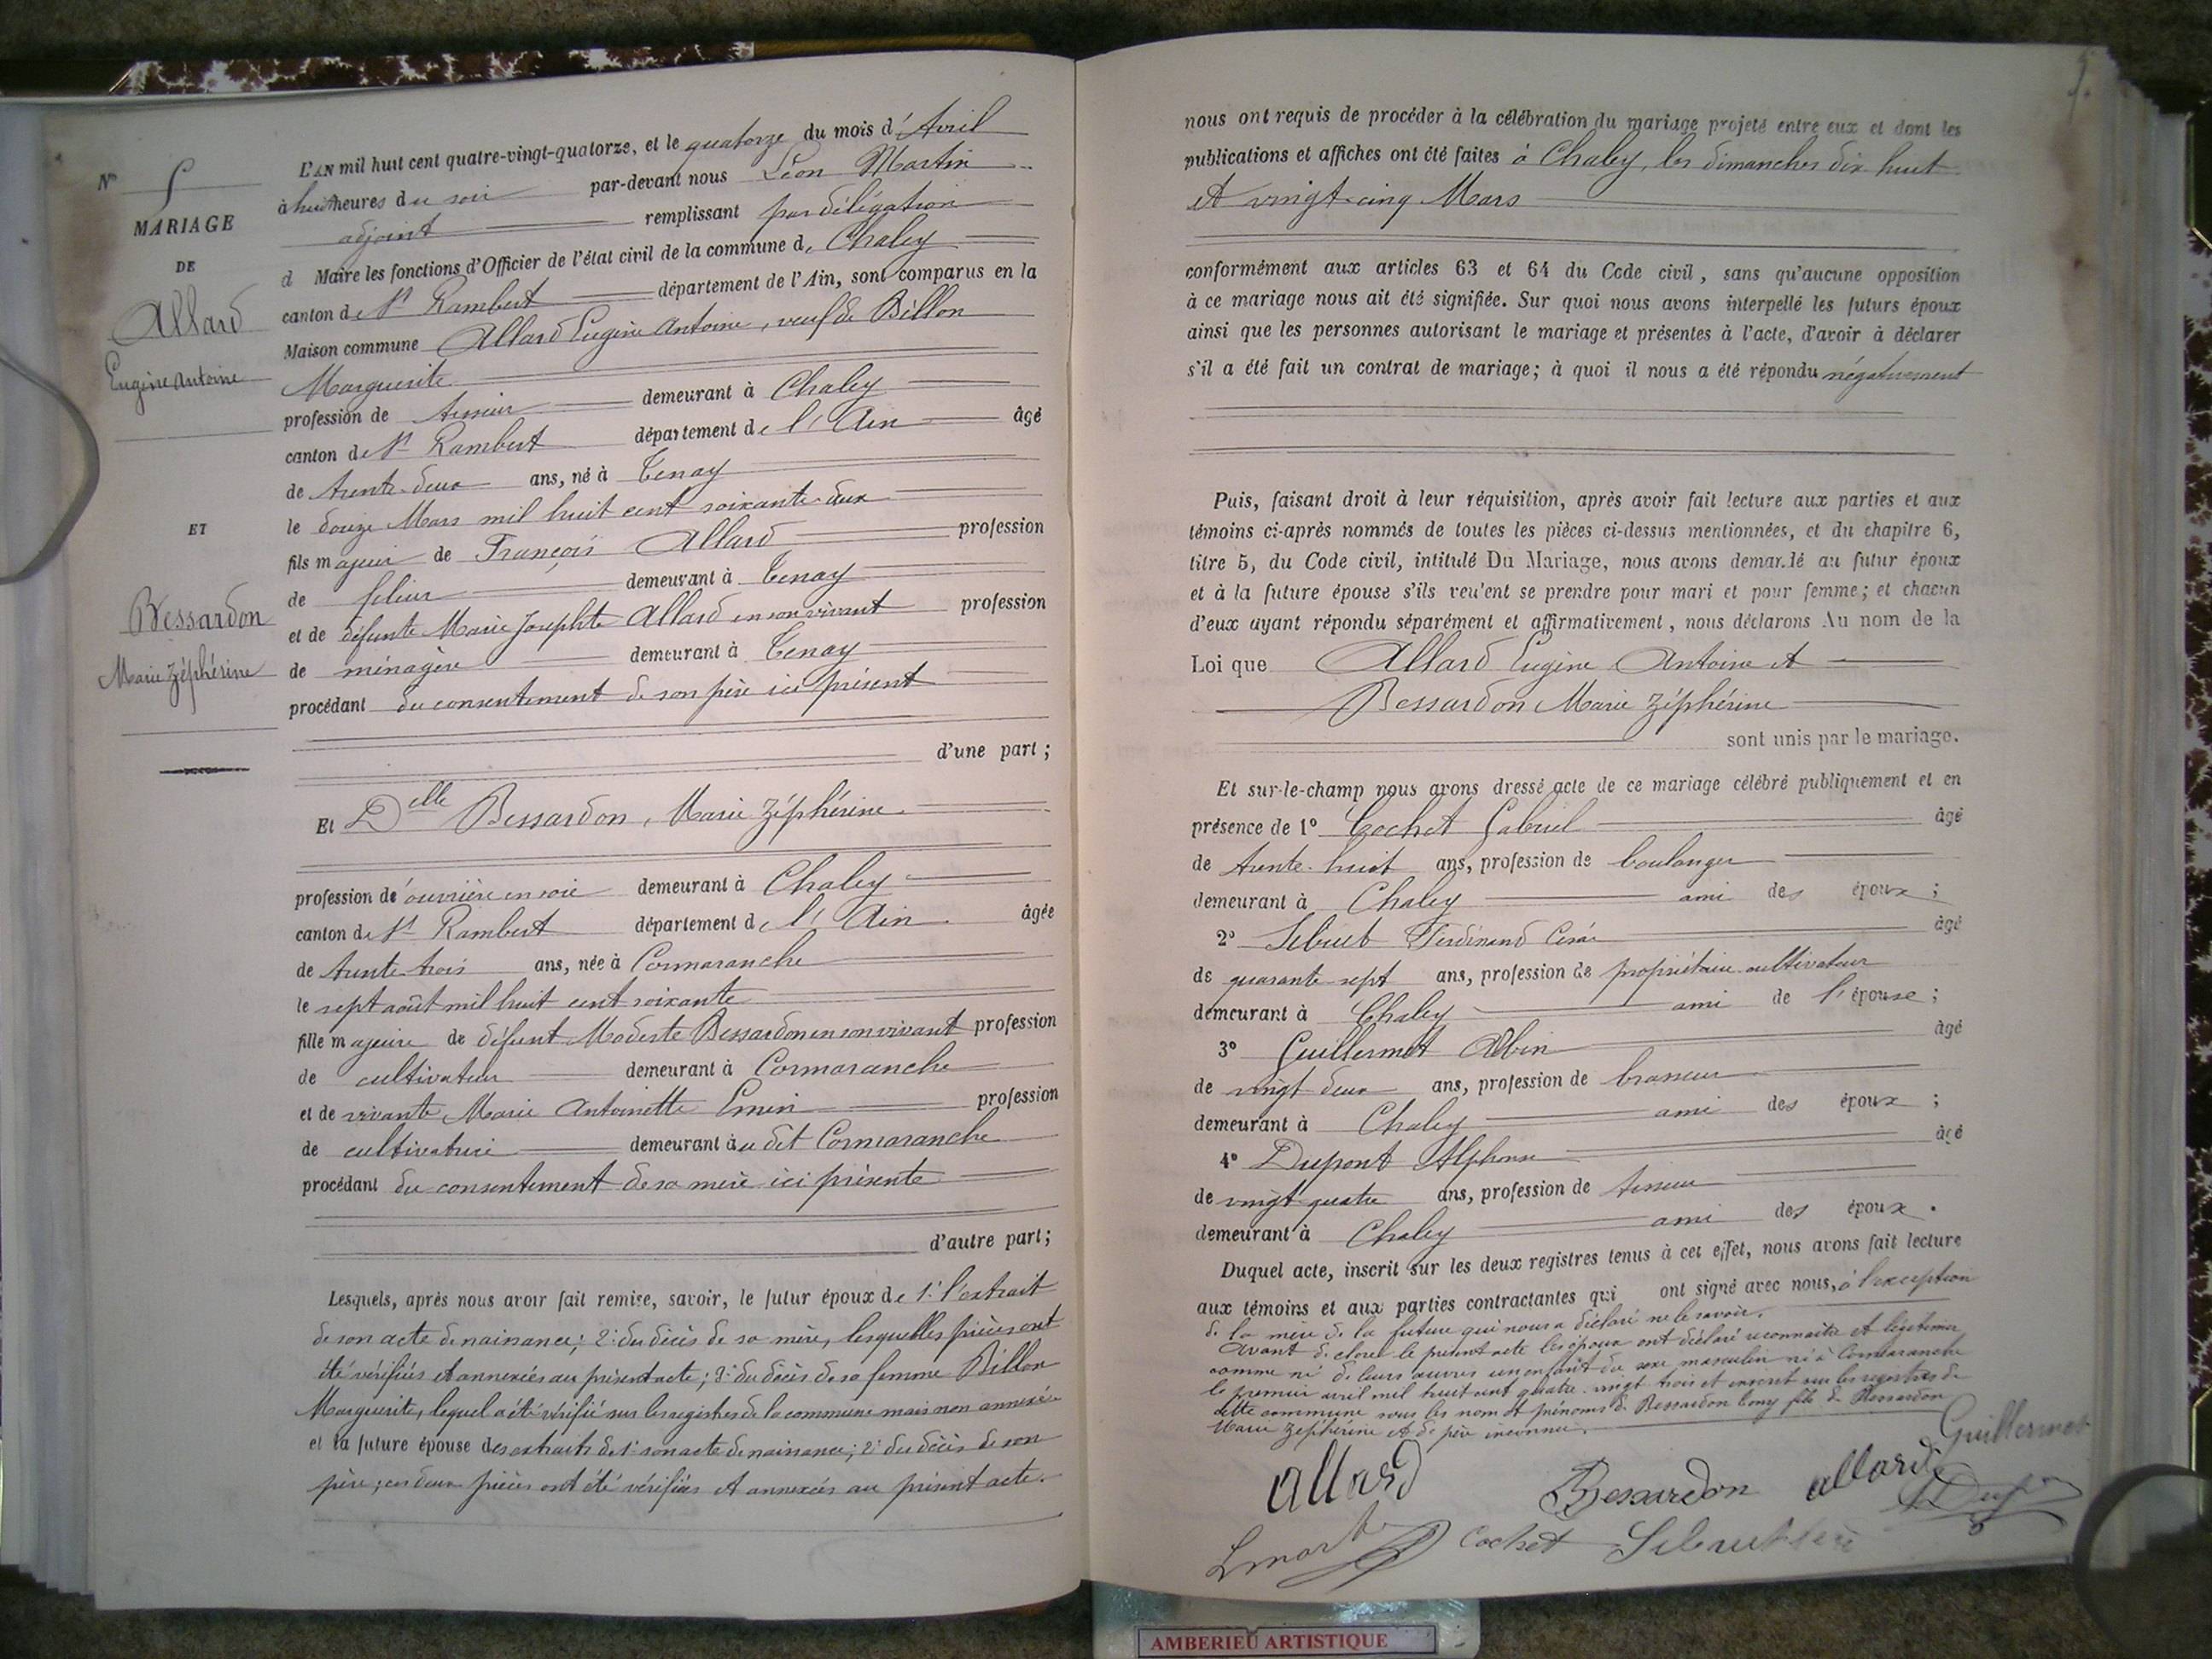 N° 5
MARIAGE
DE
Allard
Eugène Antoine
ET
Bessardon
Marie Zéphérine
L'AN mil huit cent quatre-vingt-quatorze, et le quatorze du mois d'Avril
à huit heures du soir par-devant nous Léon Martin
adjoint remplissant par délégation
d Maire les fonctions d'Officier de l'état civil de la commune de Chaley
canton de St Rambert département de l'Ain, sont comparus en la
Maison commune Allard Eugène Antoine, veuf de Billon
Marguerite
profession de tisseur demeurant à Chaley
canton de St Rambert département de l'Ain âgé
de trente-deux ans, né à Tenay
le douze Mars mil huit cent soixante-deux
fils majeur de François Allard profession
de fileur demeurant à Tenay
et de défunte Marie Josephte Allard en son vivant profession
de ménagère demeurant à Tenay
procédant du consentement de son père ici présent
d'une part;
Et Delle Bessardon, Marie Zéphérine
profession de ouvrière en soie demeurant à Chaley
canton de St Rambert département de l'Ain âgée
de trente-trois ans, née à Cormaranche
le sept août mil huit cent soixante
fille majeure de défunt Modeste Bessardon en son vivant profession
de cultivateur demeurant à Cormaranche
et de vivante Marie Antoinette Emin profession
de cultivatrice demeurant au dit Cormaranche
procédant du consentement de sa mère ici présente
d'autre part;
Lesquels, après nous avoir fait remise, savoir, le futur époux de 1° l'extrait
de son acte de naissance; 2° du décès de sa mère, lesquelles pièces ont
été vérifiées et annexées au présent acte; 3° du décès de sa femme Billon
Marguerite, lequel a été vérifié sur les registres de la commune mais non annexé
et la future épouse des extraits de 1° son acte de naissance; 2° du décès de son
père; ces deux pièces ont été vérifiées et annexées au présent acte.
nous ont requis de procéder à la célébration du mariage projeté entre eux et dont les
publications et affiches ont été faites à Chaley, les dimanches dix huit
et vingt-cinq Mars
conformément aux articles 63 et 64 du Code civil, sans qu'aucune opposition
à ce mariage nous ait été signifiée. Sur quoi nous avons interpellé les futurs époux
ainsi que les personnes autorisant le mariage et présentes à l'acte, d'avoir à déclarer
s'il a été fait un contrat de mariage; à quoi il nous a été répondu négativement
Puis, faisant droit à leur réquisition, après avoir fait lecture aux parties et aux
témoins ci-après nommés de toutes les pièces ci-dessus mentionnées, et du chapitre 6,
titre 5, du Code civil, intitulé Du Mariage, nous avons demandé au futur époux
et à la future épouse s'ils veulent se prendre pour mari et pour femme; et chacun
d'eux ayant répondu séparément et affirmativement, nous déclarons Au nom de la
Loi que Allard Eugène Antoine et
Bessardon Marie Zéphérine
sont unis par le mariage.
Et sur-le-champ nous avons dressé acte de ce mariage célébré publiquement et en
présence de 1° Cochet Gabriel âgé
de trente-huit ans, profession de boulanger
demeurant à Chaley ami des époux;
2° Ferdinand César âgé
de quarante-sept ans, profession de propriétaire cultivateur
demeurant à Chaley ami de l'épouse;
3° Guillermet Albin âgé
de vingt-deux ans, profession de brasseur
demeurant à Chaley ami des époux;
4° Dupont Alphonse âgé
de vingt-quatre ans, profession de tisseur
demeurant à Chaley ami des époux.
Duquel acte, inscrit sur les deux registres tenus à cet effet, nous avons fait lecture
aux témoins et aux parties contractantes qui ont signé avec nous, à l'exception
de la mère de la future qui nous a déclaré ne le savoir.
Avant de clore le présent acte les époux ont déclaré reconnaître et légitimer
comme né de leurs œuvres un enfant du sexe masculin né à Cormaranche
le premier avril mil huit cent quatre-vingt trois et inscrit sur les registres de
cette commune sous les nom et prénoms de Bessardon Tony fils de Bessardon
Marie Zéphérine et de père inconnu.
Guillermet
Allard Bessardon allard
Cochet
AMBERIEU ARTISTIQUE